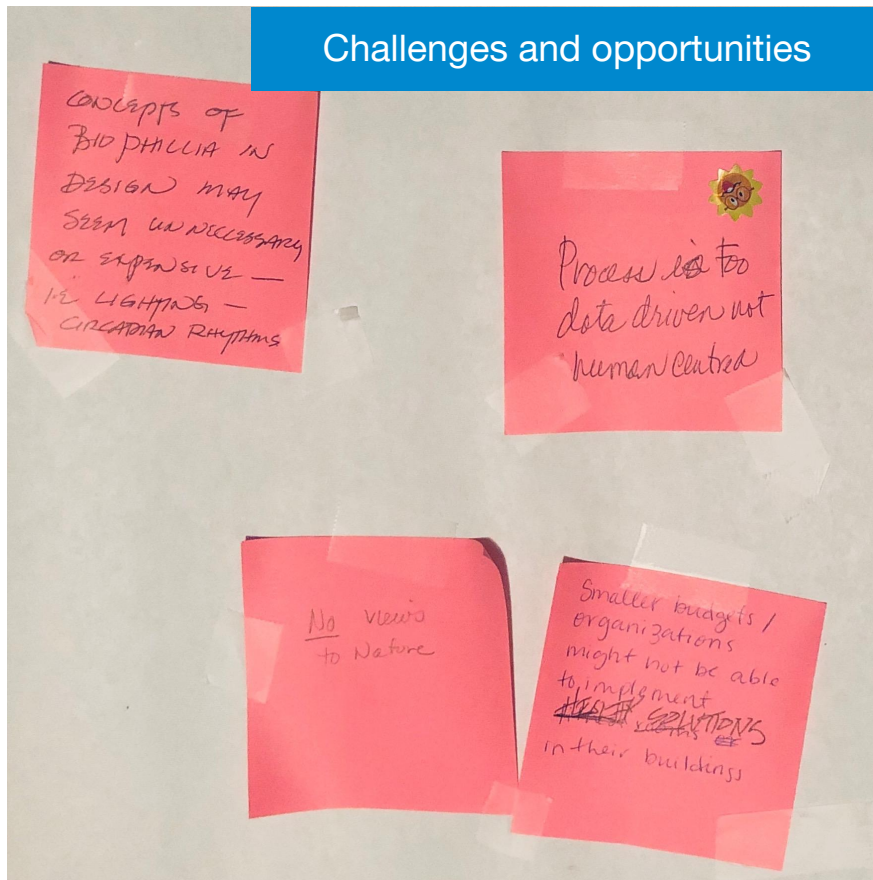 Challenges and opportunities
CONCEPTS OF
BIOPHILLIA IN
DESIGN MAY
SEEM UNNECCESSARY
OR EXPENSIVE —
IE LIGHTING —
CIRCADIAN RHYTHMS
Process is too
data driven not
human centred
No views
to Nature
Smaller budgets /
organizations
might not be able
to implement
SOLUTIONS
in their buildings